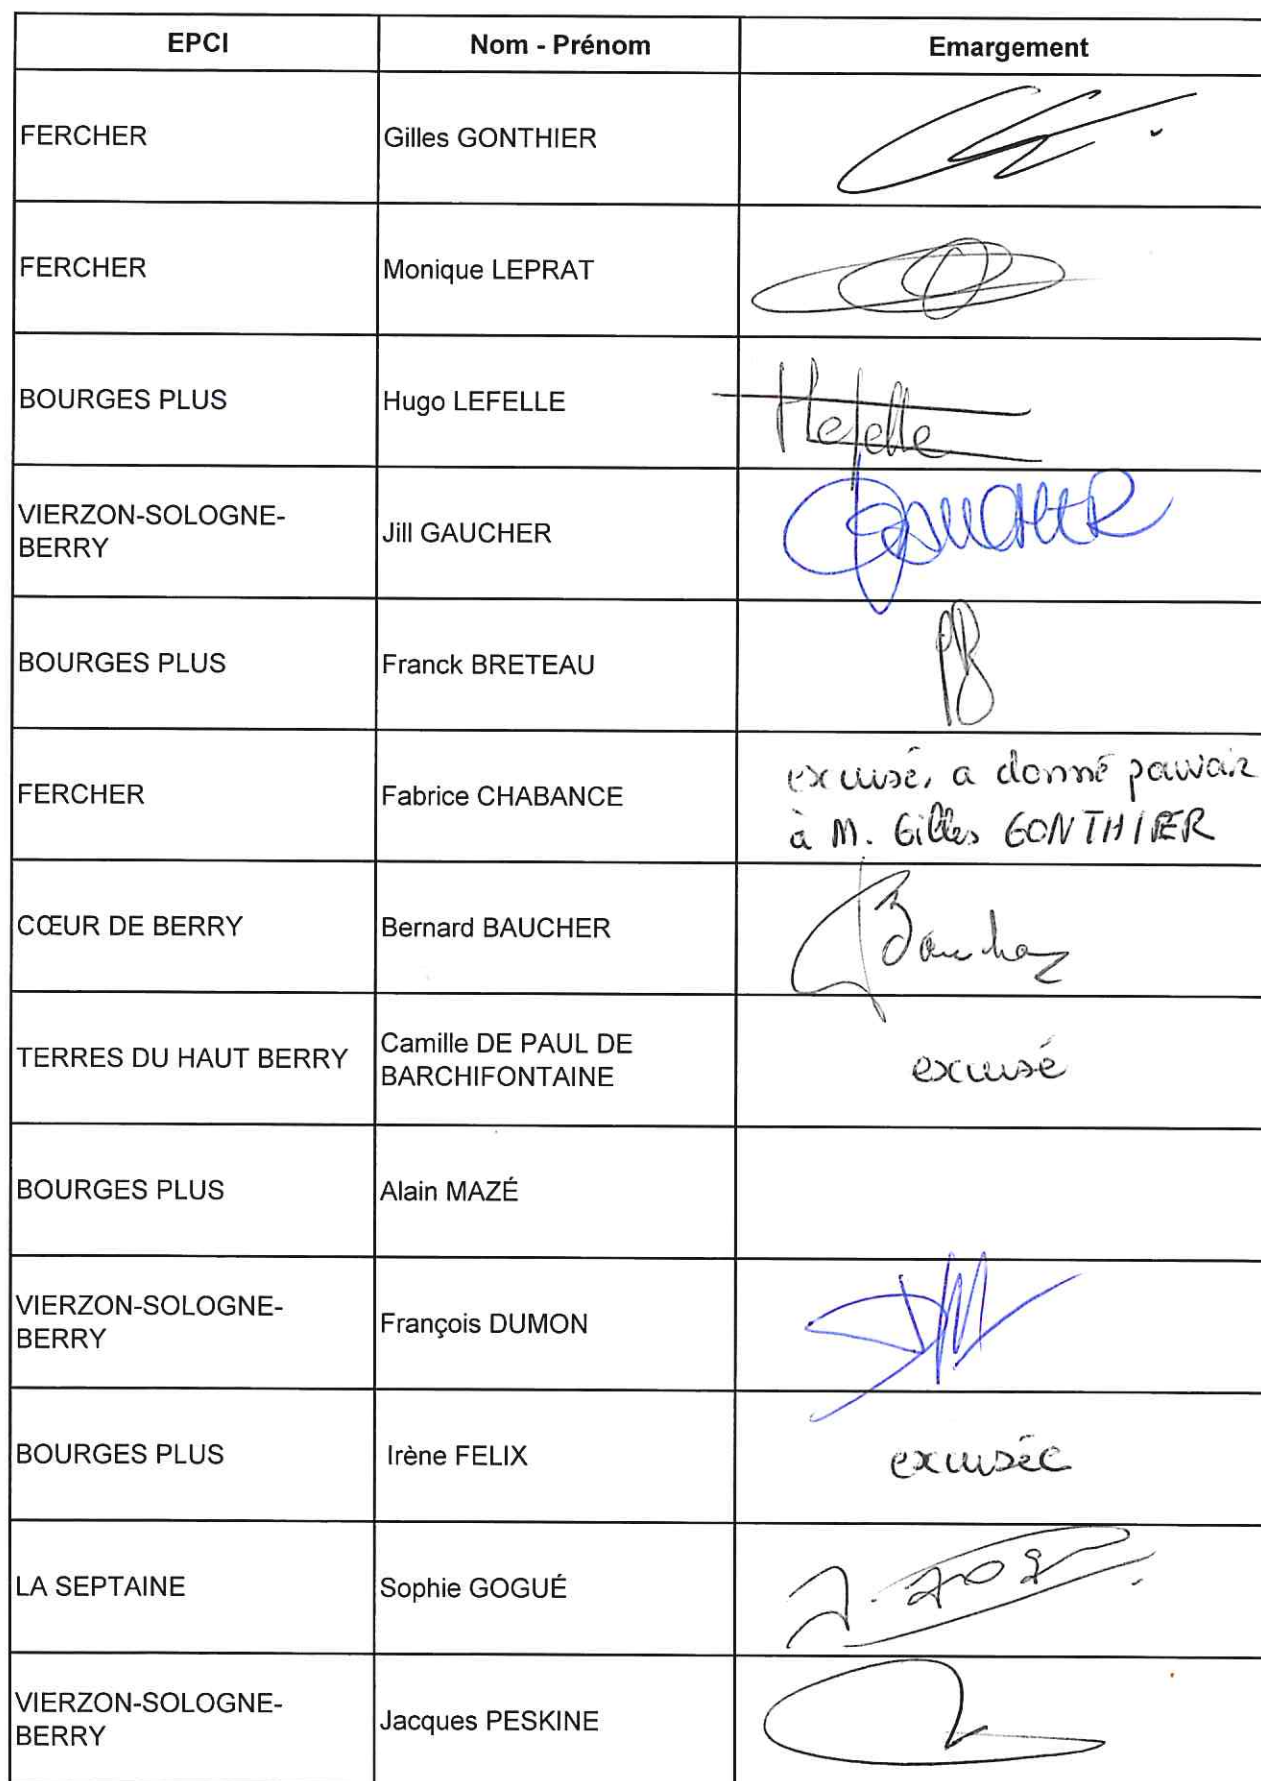 EPCI Nom - Prénom Emargement
FERCHER Gilles GONTHIER
FERCHER Monique LEPRAT
BOURGES PLUS Hugo LEFELLE Hefelle
VIERZON-SOLOGNE-
BERRY Jill GAUCHER GAUCHER
BOURGES PLUS Franck BRETEAU
FERCHER Fabrice CHABANCE excusé, a donné pouvoir
à M. Gilles GONTHIER
CŒUR DE BERRY Bernard BAUCHER Baucher
TERRES DU HAUT BERRY Camille DE PAUL DE
BARCHIFONTAINE excusé
BOURGES PLUS Alain MAZÉ
VIERZON-SOLOGNE-
BERRY François DUMON
BOURGES PLUS Irène FELIX excusée
LA SEPTAINE Sophie GOGUÉ
VIERZON-SOLOGNE-
BERRY Jacques PESKINE